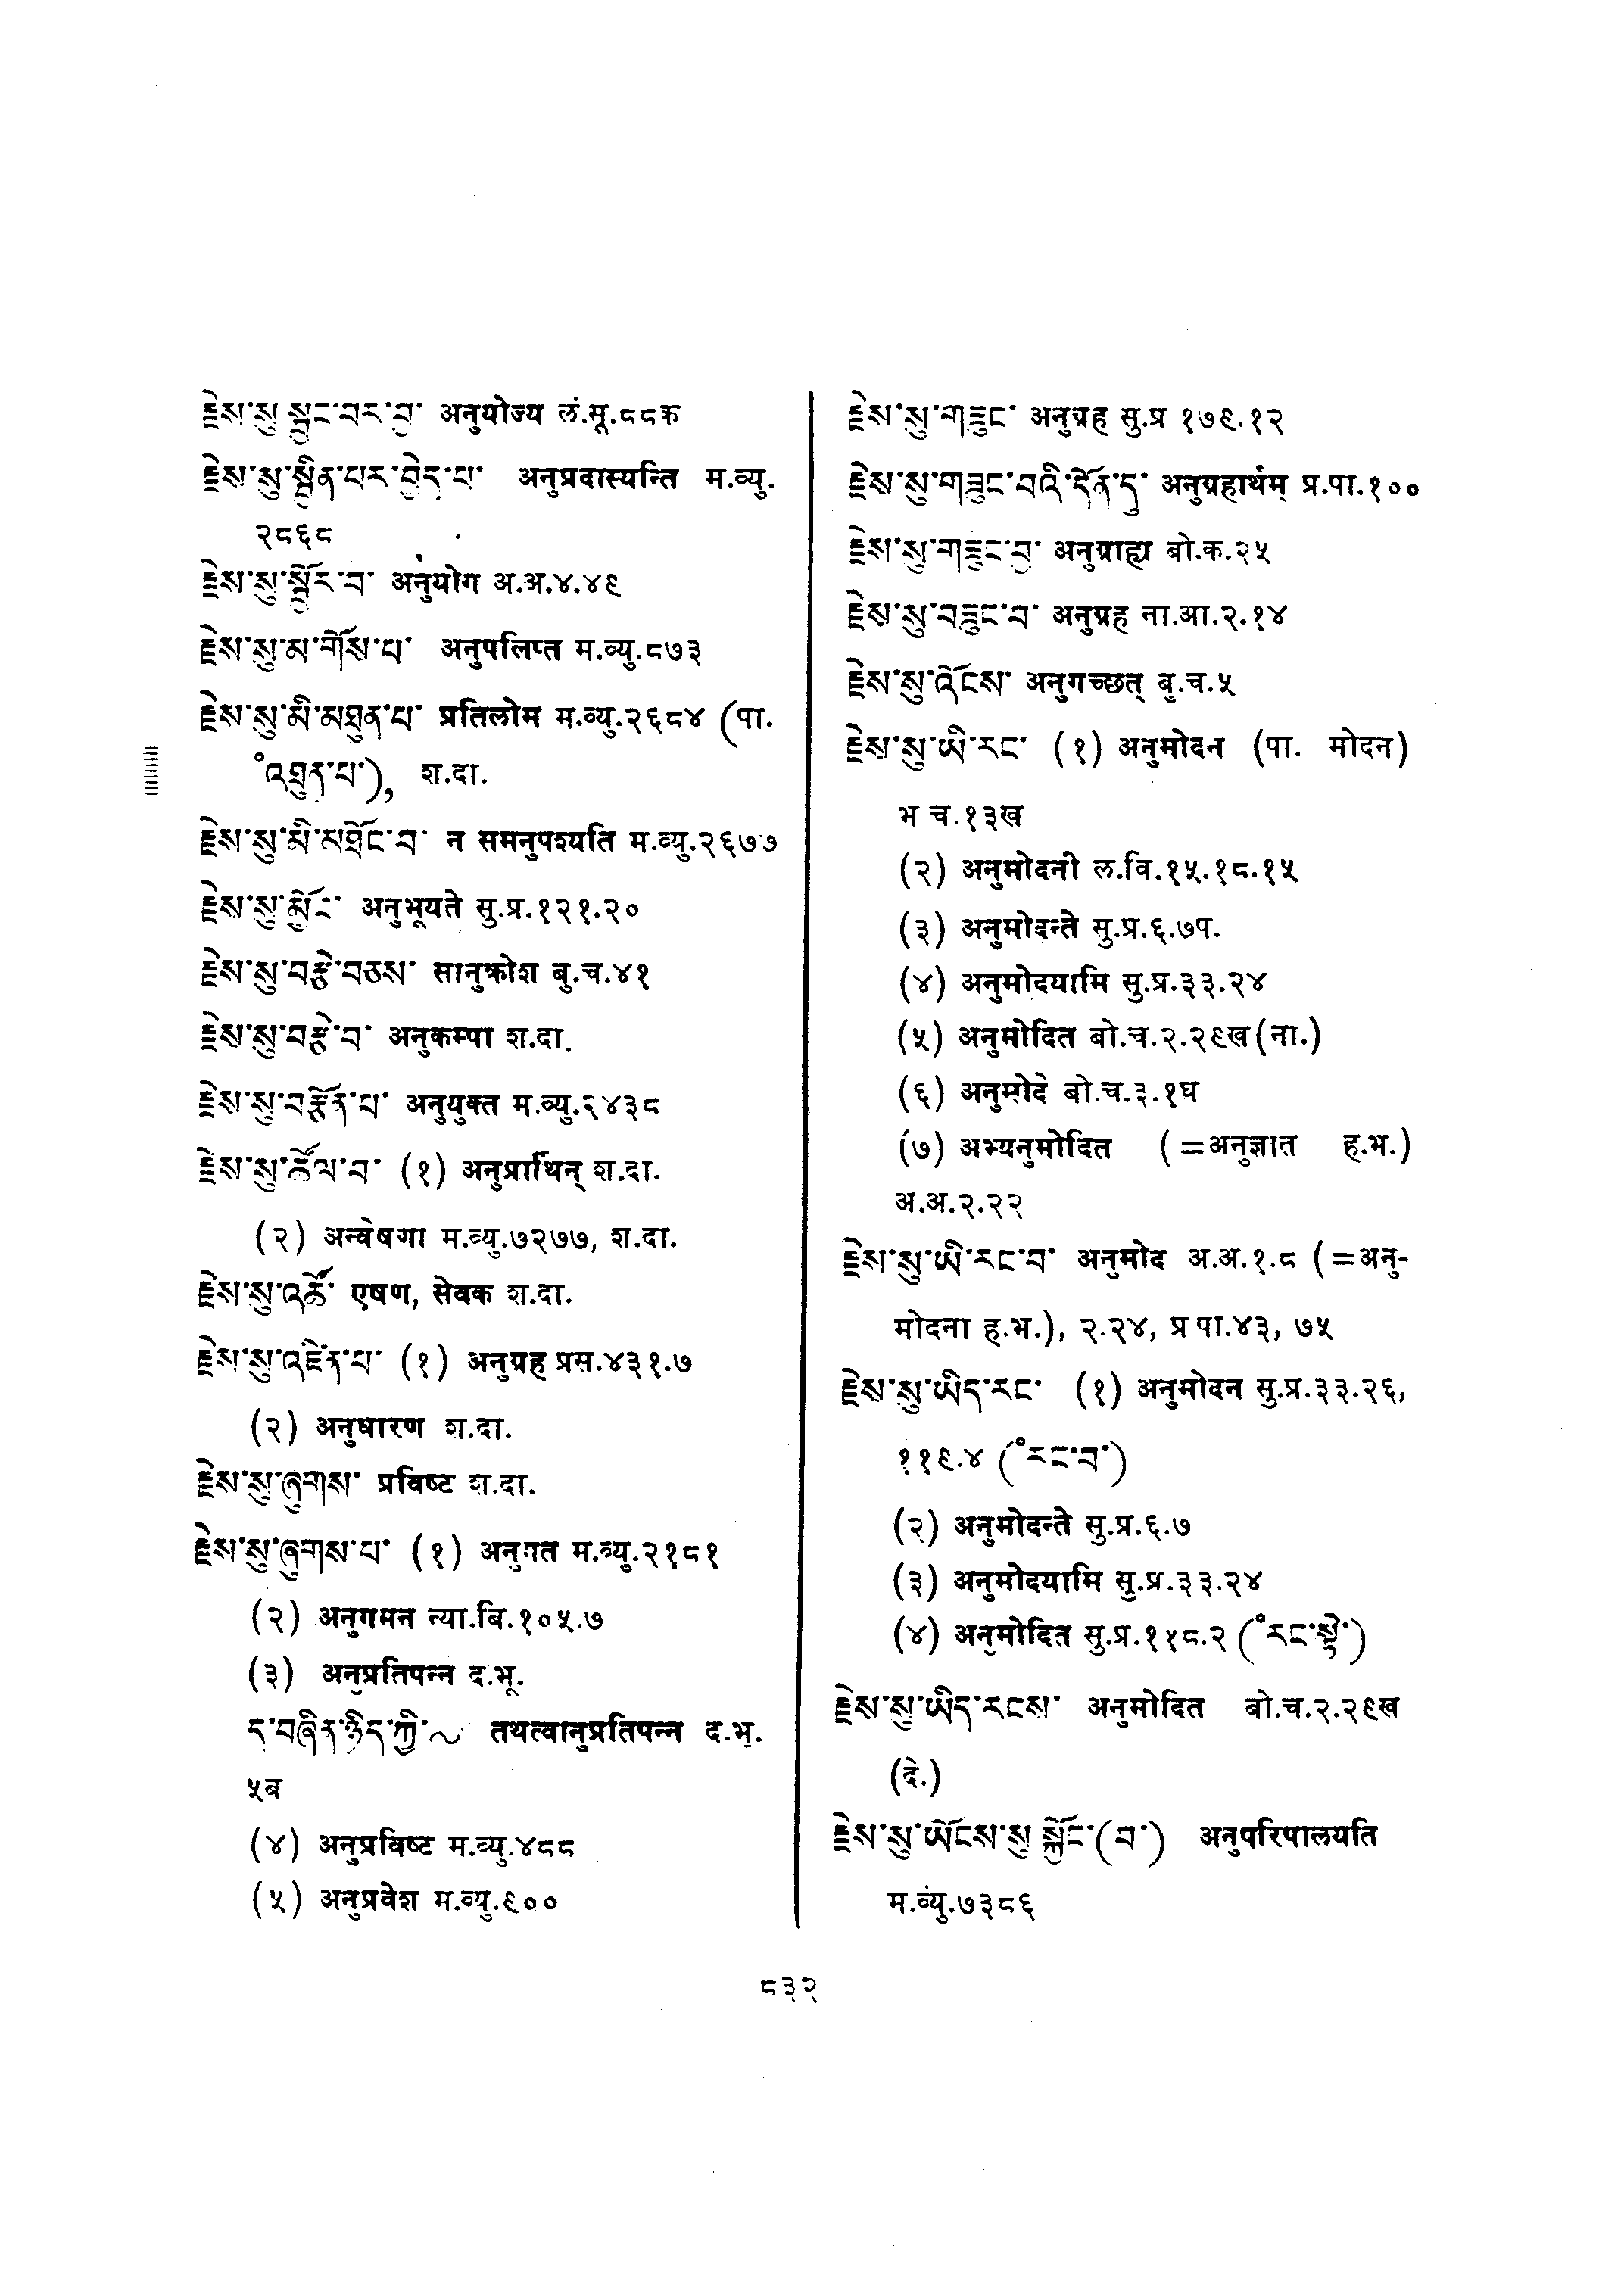 རྗེས་སུ་སྦྱང་བར་བྱ་ अनुयोज्य लं.सू.८८क
རྗེས་སུ་སྦྱིན་པར་བྱེད་པ་ अनुप्रदास्यन्ति म.व्यु.
२८६८
རྗེས་སུ་སྦྱོར་བ་ अनुयोग अ.अ.४.४९
རྗེས་སུ་མ་གོས་པ་ अनुपलिप्त म.व्यु.८७३
རྗེས་སུ་མི་མཐུན་པ་ प्रतिलोम म.व्यु.२६८४ (पा.
°འཐུན་པ་), श.दा.
རྗེས་སུ་མི་མཐོང་བ་ न समनुपश्यति म.व्यु.२६७७
རྗེས་སུ་མྱོང་ अनुभूयते सु.प्र.१२१.२०
རྗེས་སུ་བརྩེ་བཅས་ सानुक्रोश बु.च.४१
རྗེས་སུ་བརྩེ་བ་ अनुकम्पा श.दा.
རྗེས་སུ་བརྩོན་པ་ अनुयुक्त म.व्यु.२४३८
རྗེས་སུ་ཚོལ་བ་ (१) अनुप्रार्थिन् श.दा.
(२) अन्वेषणा म.व्यु.७२७७, श.दा.
རྗེས་སུ་འཚོ་ एषण, सेवक श.दा.
རྗེས་སུ་འཛིན་པ་ (१) अनुग्रह प्रस.४३१.७
(२) अनुधारण श.दा.
རྗེས་སུ་ཞུགས་ प्रविष्ट श.दा.
རྗེས་སུ་ཞུགས་པ་ (१) अनुगत म.व्यु.२१८१
(२) अनुगमन न्या.बि.१०५.७
(३) अनुप्रतिपन्न द.भू.
ད་བཞིན་ཉིད་ཀྱི་~ तथत्वानुप्रतिपन्न द.भू.
५ब
(४) अनुप्रविष्ट म.व्यु.४८८
(५) अनुप्रवेश म.व्यु.९००
རྗེས་སུ་གཟུང་ अनुग्रह सु.प्र १७९.१२
རྗེས་སུ་གཟུང་བའི་དོན་དུ་ अनुग्रहार्थम् प्र.पा.१००
རྗེས་སུ་གཟུང་བྱ་ अनुग्राह्य बो.क.२५
རྗེས་སུ་བཟུང་བ་ अनुग्रह ना.आ.२.१४
རྗེས་སུ་འོངས་ अनुगच्छत् बु.च.५
རྗེས་སུ་ཡི་རང་ (१) अनुमोदन (पा. मोदन)
भ च.१३ख
(२) अनुमोदनी ल.वि.१५.१८.१५
(३) अनुमोदन्ते सु.प्र.६.७प.
(४) अनुमोदयामि सु.प्र.३३.२४
(५) अनुमोदित बो.च.२.२९ख(ना.)
(६) अनुमोदे बो.च.३.१घ
(७) अभ्यनुमोदित (=अनुज्ञात ह.भ.)
अ.अ.२.२२
རྗེས་སུ་ཡི་རང་བ་ अनुमोद अ.अ.१.८ (=अनु-
मोदना ह.भ.), २.२४, प्र पा.४३, ७५
རྗེས་སུ་ཡིད་རང་ (१) अनुमोदन सु.प्र.३३.२६,
११९.४ (°རང་བ་)
(२) अनुमोदन्ते सु.प्र.६.७
(३) अनुमोदयामि सु.प्र.३३.२४
(४) अनुमोदित सु.प्र.१५८.२ (°རང་སྟེ་)
རྗེས་སུ་ཡིད་རངས་ अनुमोदित बो.च.२.२९ख
(दे.)
རྗེས་སུ་ཡོངས་སུ་སྐྱོང་(བ་) अनुपरिपालयति
म.व्यु.७३८६
८३२